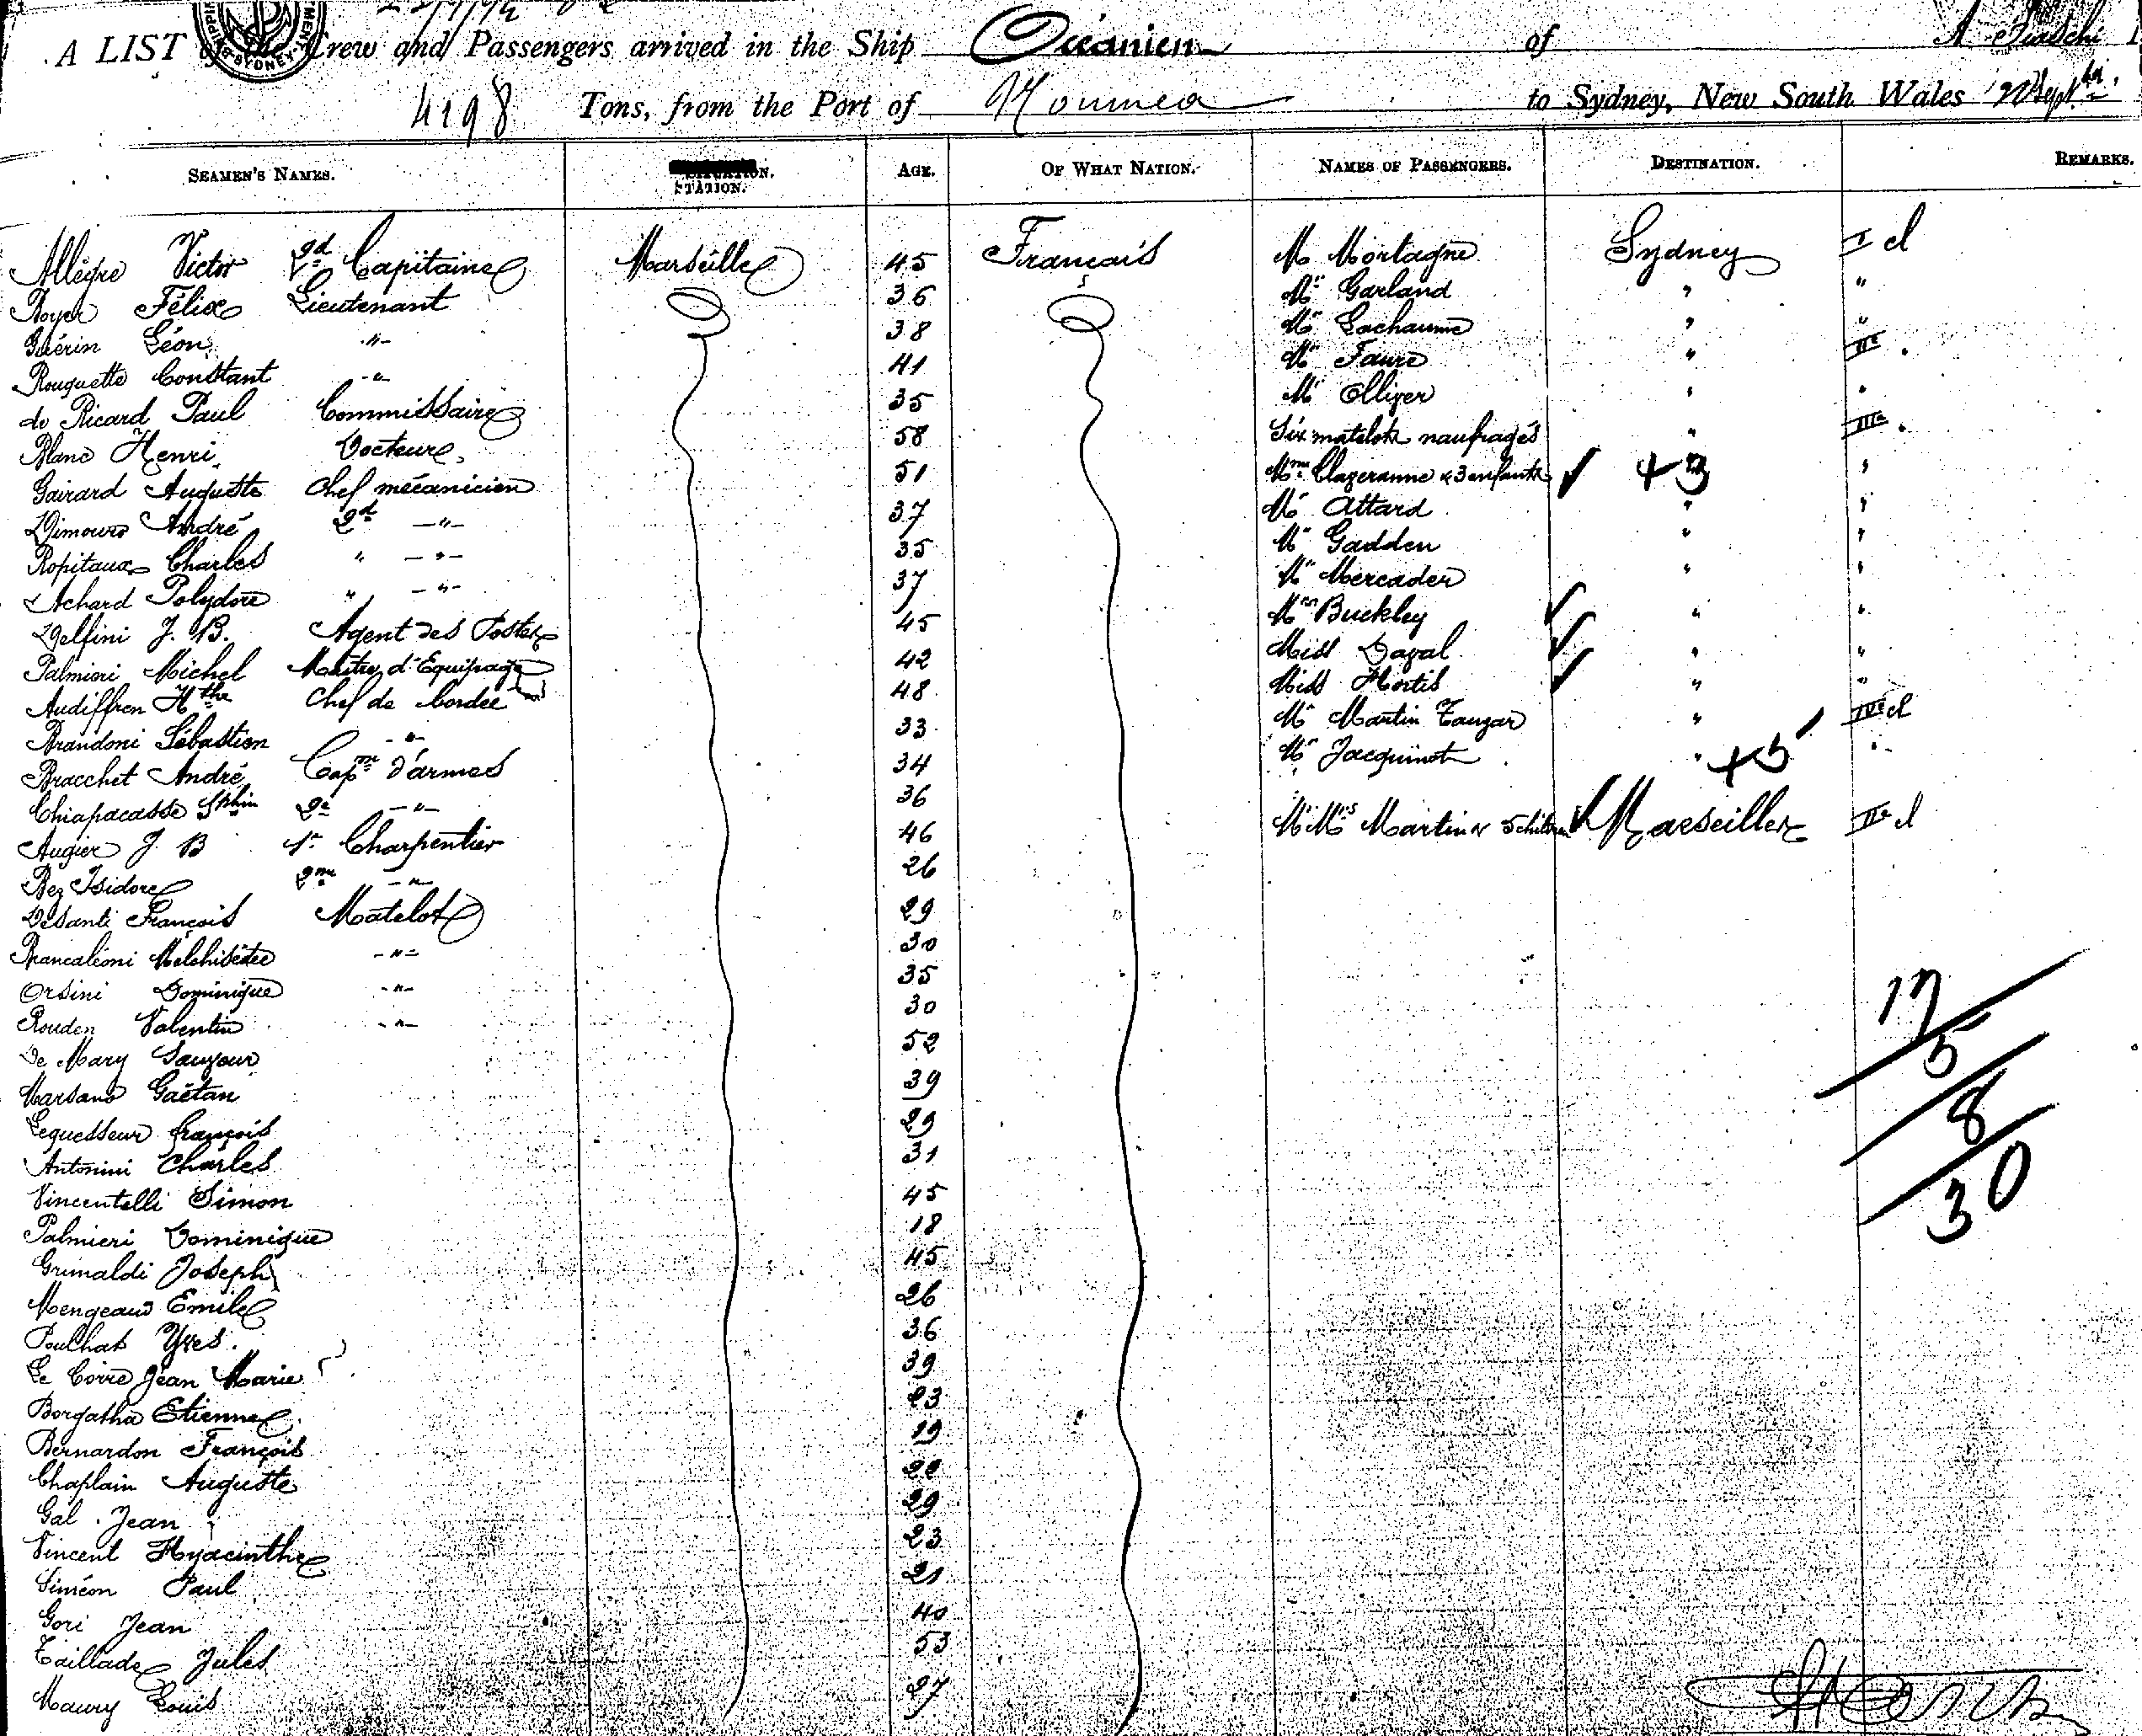 A LIST of the Crew and Passengers arrived in the Ship Océanien of
4198 Tons, from the Port of Noumea to Sydney, New South Wales
SEAMEN'S NAMES. STATION. AGE. OF WHAT NATION. NAMES OF PASSENGERS. DESTINATION. REMARKS.
Allègre Victor 2d Capitaine Marseille 45 Français M Mortagne Sydney I cl
Boyer Félix Lieutenant 36 Mr Garland " "
Guérin Léon -"- 38 Mr Lachaume " "
Rouquette Constant -"- 41 Mr Faure " II
de Ricard Paul Commissaire 35 Mr Olliver " "
Blanc Henri Docteur 58 Six matelots naufragés " III
Gairard Auguste Chef mécanicien 51 Mme Clazeranne & 3 enfants +3 "
André 2d -"- 37 Mr Attard " "
Ropitaux Charles " -"- 35 Mr Gadden " "
Achard Polydore " -"- 37 Mr Mercader " "
Delfini J. B. Agent des Postes 45 Mrs Buckley " "
Palmieri Michel Maître d'Equipage 42 Miss "
Audiffren Hthe Chef de bordée 48 Miss Hortis " "
Brandoni Sébastien -"- 33 Mr Martin " cl
Bracchet André Capne d'armes 34 Mr Jacquinot " +5 "
Chiapacasse 2e -"- 36
Augier J. B 1r Charpentier 46 Mr Mrs Martin & 5 children Marseille cl
Bez Isidore 2me -"- 26
Desanti François Matelot 29
Brancaléoni Melchisédec -"- 30
Orsini Dominique -"- 35
Rouden Valentin -"- 30
De Mary Sauveur 52
Marsano Gaëtan 39
Lequesseur François 29
Antonini Charles 31
Vincentelli Simon 45
Palmieri Dominique 18
Grimaldi Joseph 45
Mengeaud Emile 26
Poulhas Yves 36
Le Corre Jean Marie 39
Borgatha Etienne 23
Bernardon François 19
Chaplain Auguste
Gal Jean 29
Vincent Hyacinthe 23
Siméon Paul 21
Gori Jean 40
Taillade Jules 53
Maury Louis 27
17
5
8
30